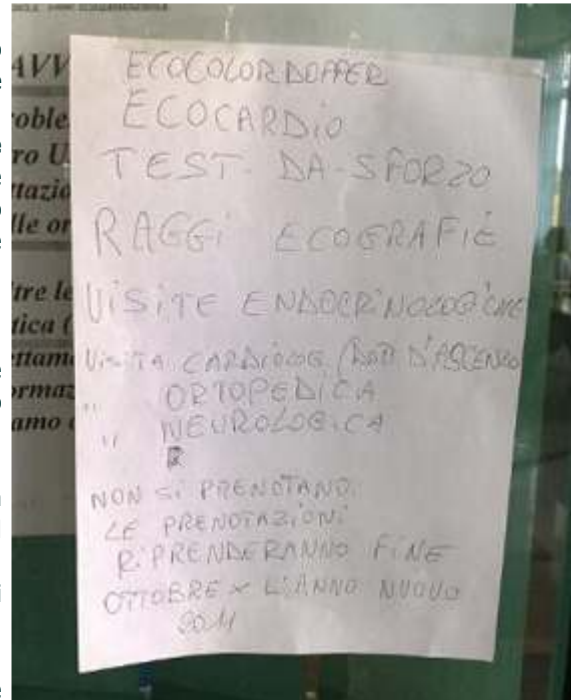 AVV
roble
ro U
tazio
lle or
tre le
tica (
ettamo
ormaz
amo
ECOCOLORDOPPER
ECOCARDiO
TEST-DA-SFORZO
RAGGi ECOGRAFiE
ViSiTE ENDOCRiNOLOGiCHE
ViSiTA CARDiOLOG. (DOTT D'ASCENZO
" ORTOPEDiCA
" NEUROLOGiCA
NON Si PRENOTANO.
LE PRENOTAZiONi
RiPRENDERANNO FiNE
OTTOBRE x L'ANNO NUOVO
2011